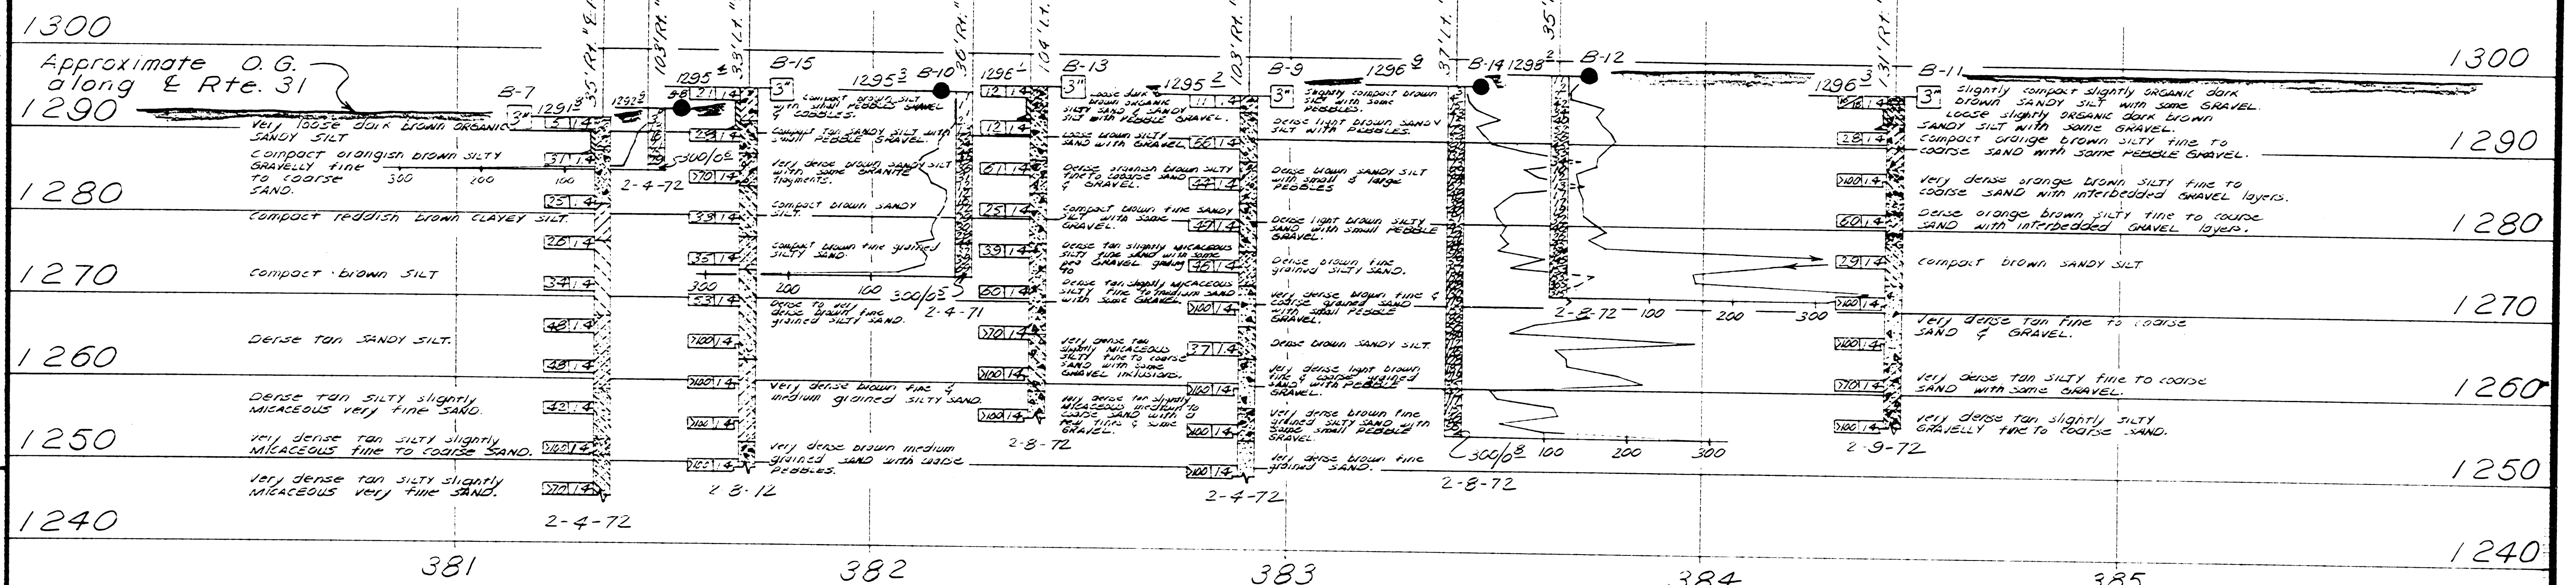 1300
Approximate O. G.
along ℄ Rte. 31
1290
1280
1270
1260
1250
1240
B-7
3"
1291⁸
35' Rt.
5 1.4
Very loose dark brown ORGANIC
SANDY SILT
31 1.4
Compact orangish brown SILTY
GRAVELLY fine
to coarse
SAND.
300 200 100
25 1.4
Compact reddish brown CLAYEY SILT.
26 1.4
Compact brown SILT
34 1.4
48 1.4
Dense tan SANDY SILT.
Dense tan SILTY slightly
MICACEOUS very fine SAND.
42 1.4
Very dense tan SILTY slightly
MICACEOUS fine to coarse SAND.
>100 1.4
Very dense tan SILTY slightly
MICACEOUS very fine SAND.
>70 1.4
2-4-72
103' Rt.
2-4-72
B-15
3"
33' Lt.
Compact brown SILT
with small PEBBLES GRAVEL
& COBBLES.
Compact tan SANDY SILT with
small PEBBLE GRAVEL.
Very dense brown SANDY SILT
with some GRANITE
fragments.
>70 1.4
Compact brown SANDY
SILT.
33 1.4
Compact brown fine grained
SILTY SAND.
35 1.4
53 1.4
Dense to very
dense brown fine
grained SILTY SAND.
>100 1.4
>100 1.4
Very dense brown fine &
medium grained SILTY SAND.
>100 1.4
>100 1.4
Very dense brown medium
grained SAND with coarse
PEBBLES.
2-8-72
1295³ B-10
300 200 100
300/0⁵
2-4-71
1296¹
104' Lt.
B-13
3"
12 1.4
Loose dark
brown ORGANIC
SILTY SAND & SANDY
SILT with PEBBLE GRAVEL.
12 1.4
Loose brown SILTY
SAND with GRAVEL.
61 1.4
Dense orangish brown SILTY
fine to coarse SAND
& GRAVEL.
25 1.4
Compact brown fine SANDY
SILT with some
GRAVEL.
39 1.4
Dense tan slightly MICACEOUS
SILTY fine SAND with some
pea GRAVEL grading
to
60 1.4
Dense tan slightly MICACEOUS
SILTY fine to medium SAND
with some GRAVEL.
>70 1.4
Very dense tan
slightly MICACEOUS
SILTY fine to coarse
SAND with some
GRAVEL inclusions.
>100 1.4
>100 1.4
Very dense tan slightly
MICACEOUS medium to
coarse SAND with a
few fines & some
GRAVEL.
2-8-72
1295²
103' Rt.
B-9
3"
11 1.4
Slightly compact brown
SILT with some
PEBBLES.
Dense light brown SANDY
SILT with PEBBLES.
56 1.4
Dense brown SANDY SILT
with small & large
PEBBLES
Dense light brown SILTY
SAND with small PEBBLE
GRAVEL.
Dense brown fine
grained SILTY SAND.
Very dense brown fine &
coarse grained SAND
with small PEBBLE
GRAVEL.
>100 1.4
Dense brown SANDY SILT.
37 1.4
Very dense light brown
fine & coarse grained
SAND with PEBBLE
GRAVEL.
>100 1.4
Very dense brown fine
grained SILTY SAND with
some small PEBBLE
GRAVEL.
>100 1.4
Very dense brown fine
grained SAND.
>100 1.4
2-4-72
1296⁹
37' Lt.
B-14
300/0⁸ 100 200 300
2-8-72
1298²
35'
B-12
2-8-72 100 200 300
1296³
131' Rt.
B-11
3"
Slightly compact slightly ORGANIC dark
brown SANDY SILT with some GRAVEL.
Loose slightly ORGANIC dark brown
SANDY SILT with some GRAVEL.
28 1.4
Compact orange brown SILTY fine to
coarse SAND with some PEBBLE GRAVEL.
>100 1.4
Very dense orange brown SILTY fine to
coarse SAND with interbedded GRAVEL layers.
60 1.4
Dense orange brown SILTY fine to coarse
SAND with interbedded GRAVEL layers.
29 1.4
Compact brown SANDY SILT
>100 1.4
Very dense tan fine to coarse
SAND & GRAVEL.
>100 1.4
>70 1.4
Very dense tan SILTY fine to coarse
SAND with some GRAVEL.
>100 1.4
Very dense tan slightly SILTY
GRAVELLY fine to coarse SAND.
2-9-72
1300
1290
1280
1270
1260
1250
1240
381 382 383 384 385